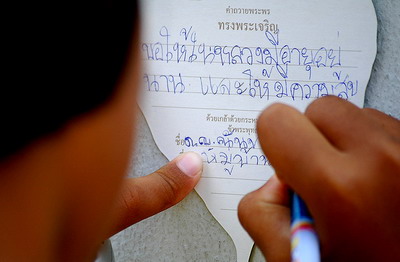 คำถวายพระพร
ทรงพระเจริญ
ขอให้ในหลวงมีอายุอยู่
นาน และให้มีความสุข
ด้วยเกล้าด้วยกระหม
ชื่อ ด.ญ.